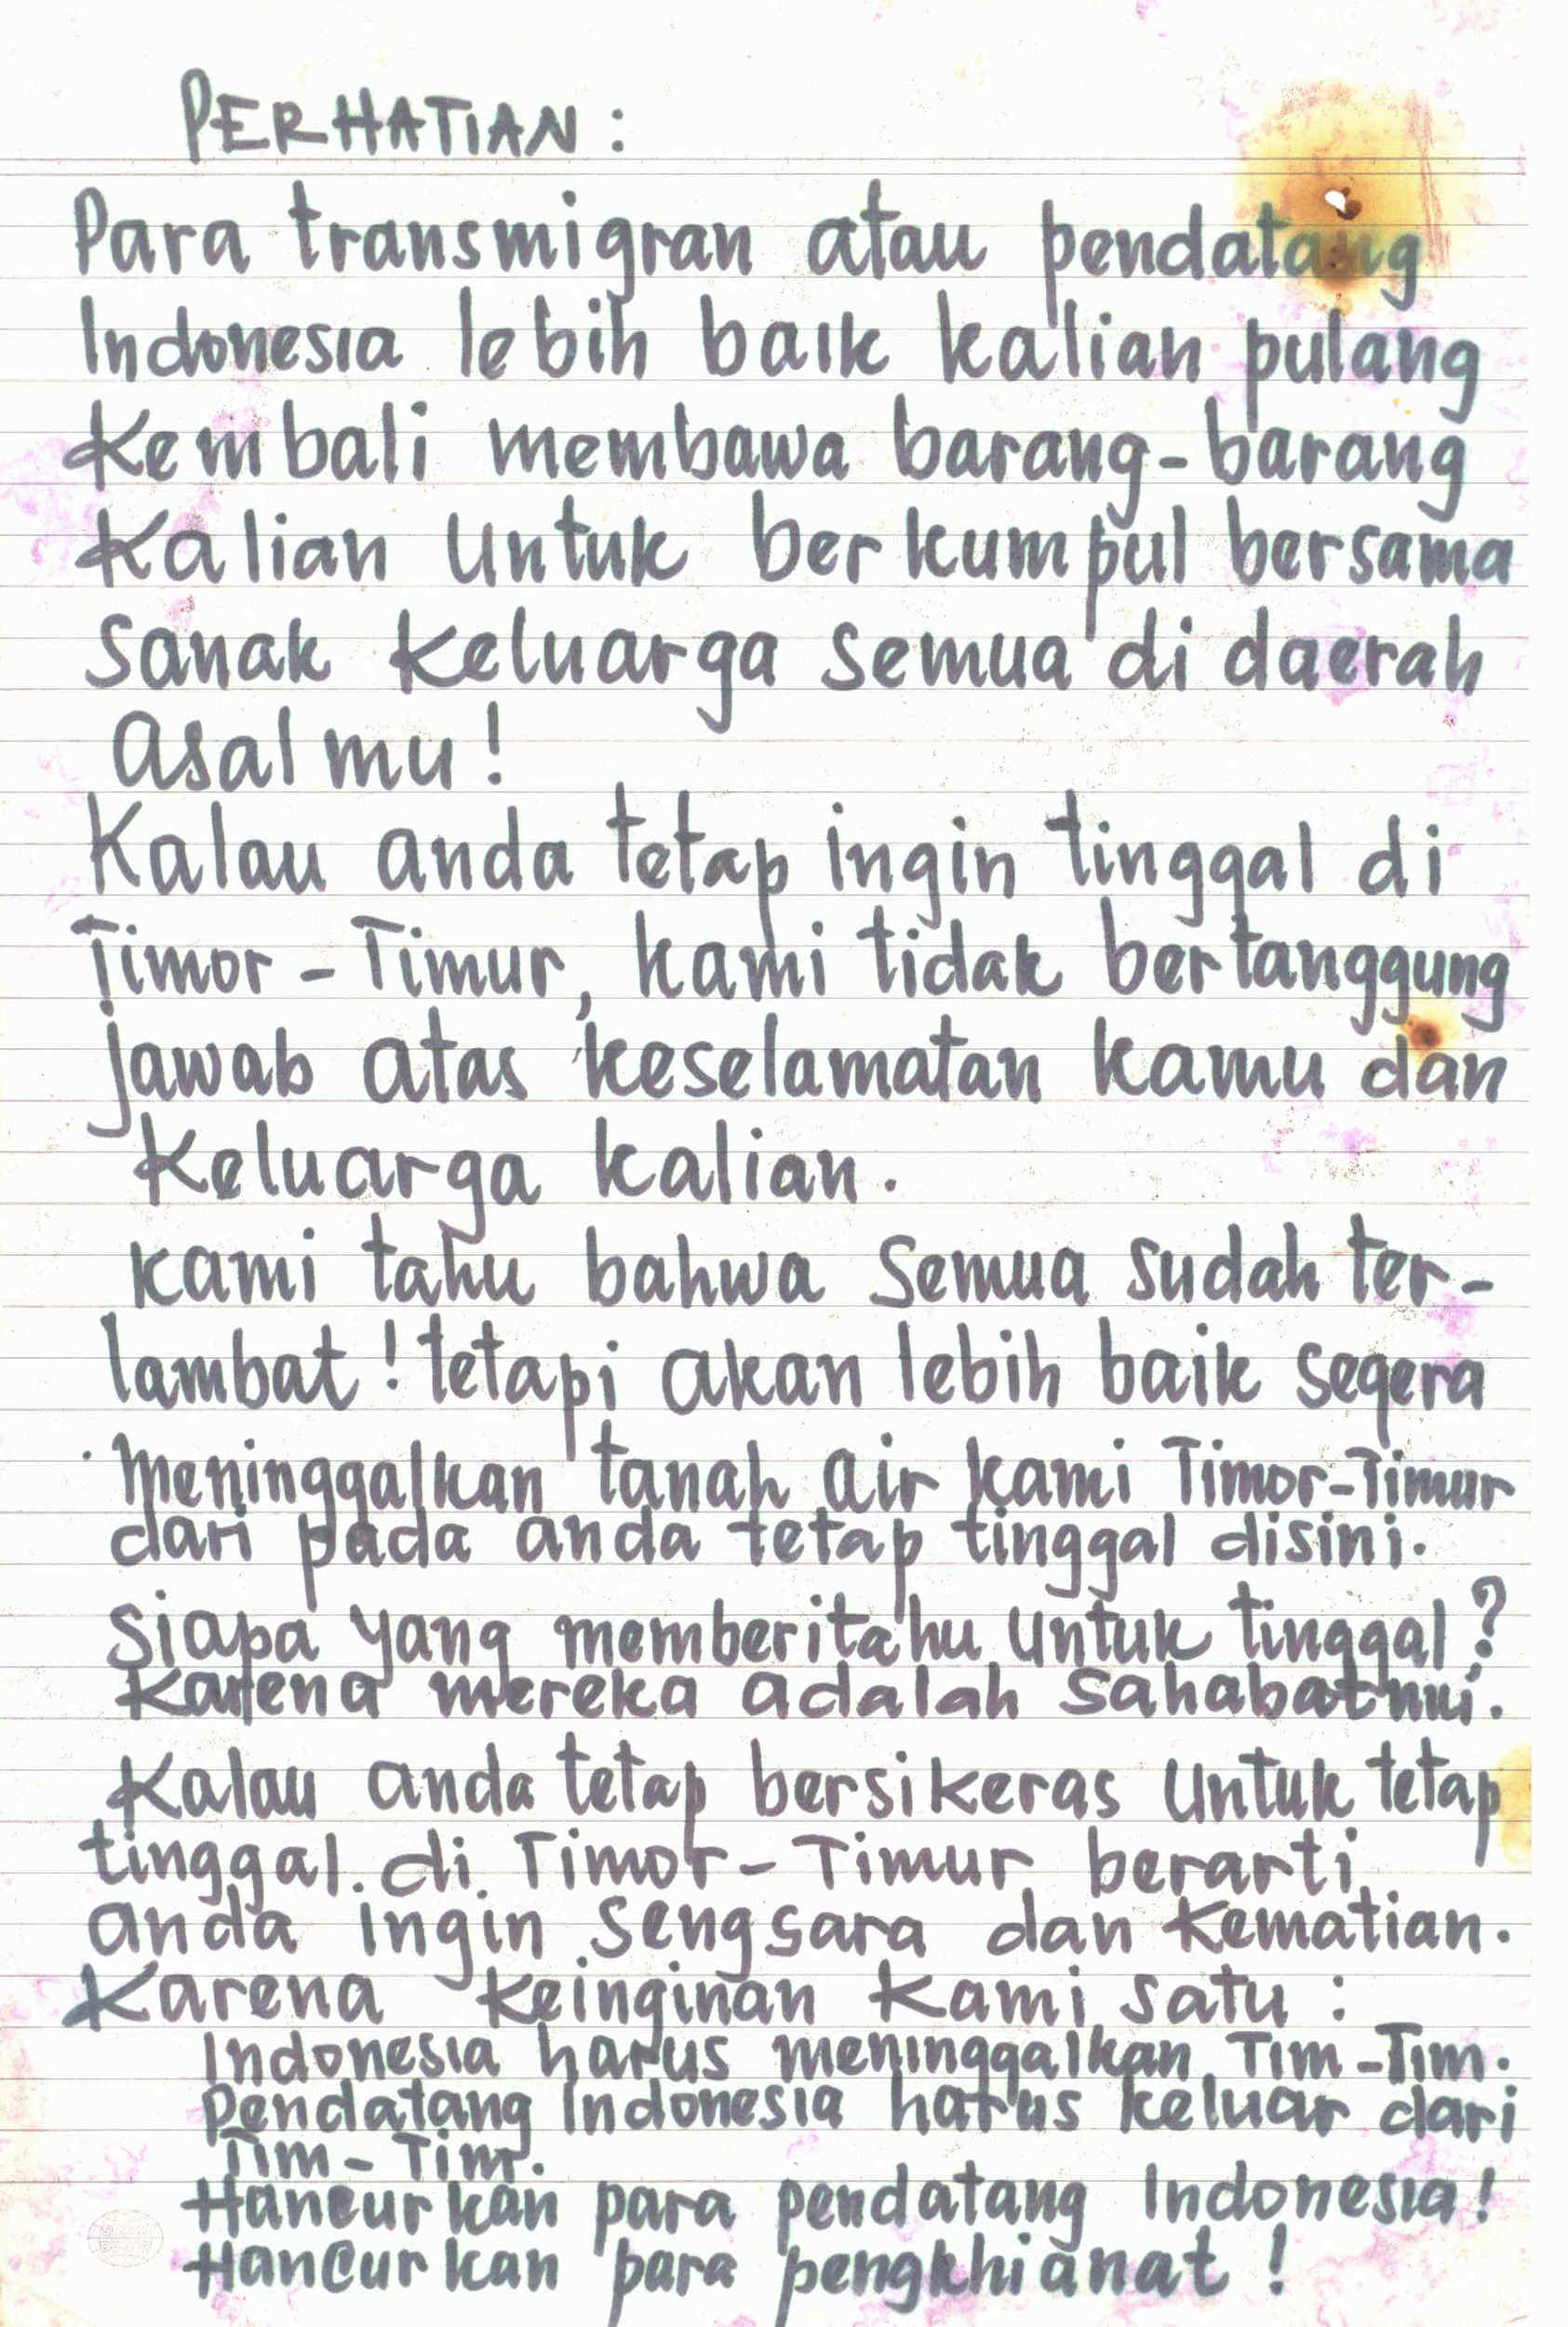 PERHATIAN :
Para transmigran atau pendatang
Indonesia lebih baik kalian pulang
Kembali membawa barang-barang
Kalian untuk berkumpul bersama
sanak keluarga semua di daerah
asalmu!
Kalau anda tetap ingin tinggal di
Timor-Timur, kami tidak bertanggung
jawab atas keselamatan kamu dan
Keluarga kalian.
Kami tahu bahwa semua sudah ter-
lambat! tetapi akan lebih baik segera
meninggalkan tanah air kami Timor-Timur
dari pada anda tetap tinggal disini.
Siapa yang memberitahu untuk tinggal?
Karena mereka adalah sahabatmu.
Kalau anda tetap bersikeras untuk tetap
tinggal di Timor-Timur berarti
anda ingin sengsara dan kematian.
Karena keinginan kami satu :
Indonesia harus meninggalkan Tim-Tim.
Pendatang Indonesia harus keluar dari
Tim-Tim.
Hancurkan para pendatang Indonesia!
Hancurkan para pengkhianat!